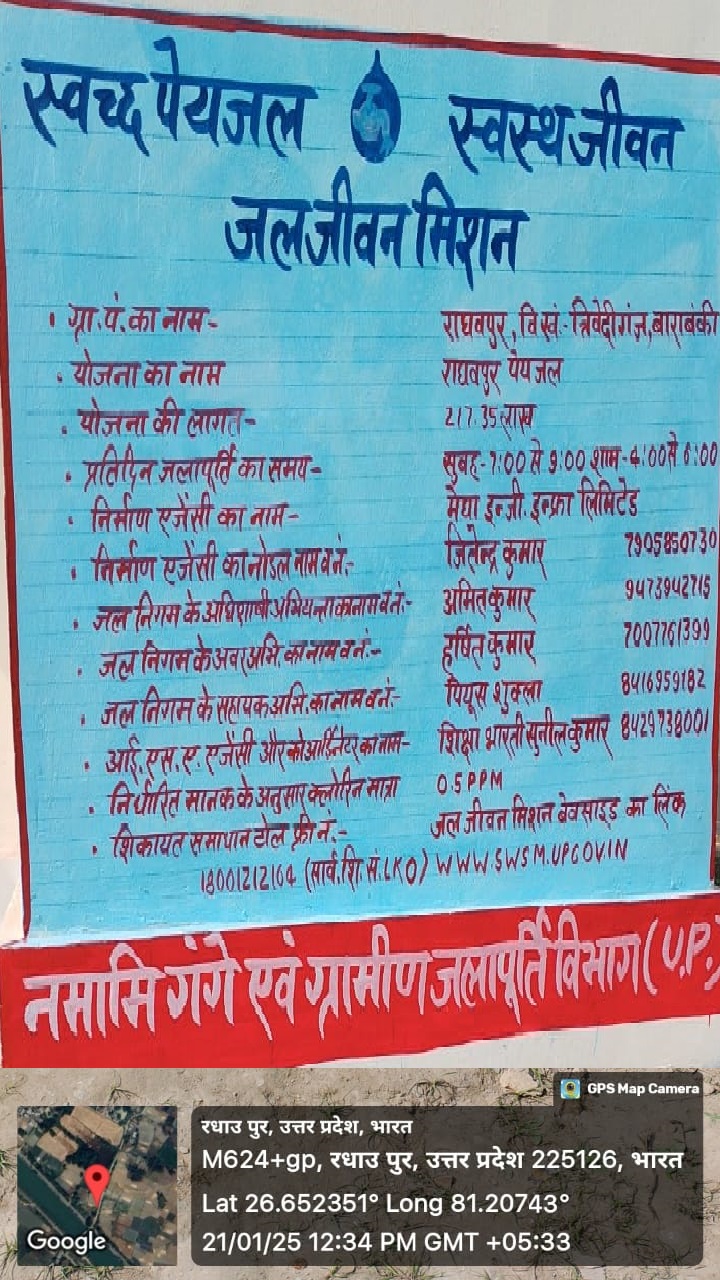 स्वच्छ पेयजल स्वस्थ जीवन
जल जीवन मिशन
• ग्रा.पं.का नाम- राघवपुर, वि.खं.- त्रिवेदीगंज, बाराबंकी
• योजना का नाम राघवपुर पेयजल
• योजना की लागत- 217.35 लाख
• प्रतिदिन जलापूर्ति का समय- सुबह-7:00 से 9:00 शाम-4:00 से 6:00
• निर्माण एजेंसी का नाम- मेघा इन्जी. इन्फ्रा लिमिटेड
• निर्माण एजेंसी का नोडल नाम व नं:- जितेन्द्र कुमार 7905850730
• जल निगम के अधिशाषी अभियन्ता का नाम व नं:- अमित कुमार 9473942715
• जल निगम के अवर अभि. का नाम व नं:- हर्षित कुमार 7007761399
• जल निगम के सहायक अभि. का नाम व नं:- पियूस शुक्ला 8416959182
• आई.एस.ए. एजेंसी और कोआर्डिनेटर का नाम- शिक्षा भारती सुनील कुमार 8429738001
• निर्धारित मानक के अनुसार क्लोरिन मात्रा 0.5 PPM
• शिकायत समाधान टोल फ्री नं:- जल जीवन मिशन बेवसाइड का लिंक
18001212164 (सार्व.शि.सं.LKO) WWW.SWSM.UPGOV.IN
नमामि गंगे एवं ग्रामीण जलापूर्ति विभाग (U.P.)
GPS Map Camera
रधाउ पुर, उत्तर प्रदेश, भारत
M624+gp, रधाउ पुर, उत्तर प्रदेश 225126, भारत
Lat 26.652351° Long 81.20743°
21/01/25 12:34 PM GMT +05:33
Google